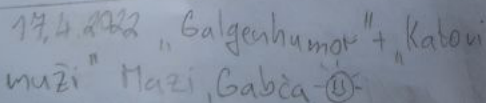 17.4.2022 „Galgenhumor"+„Katovi
muži" Mazi, Gabča